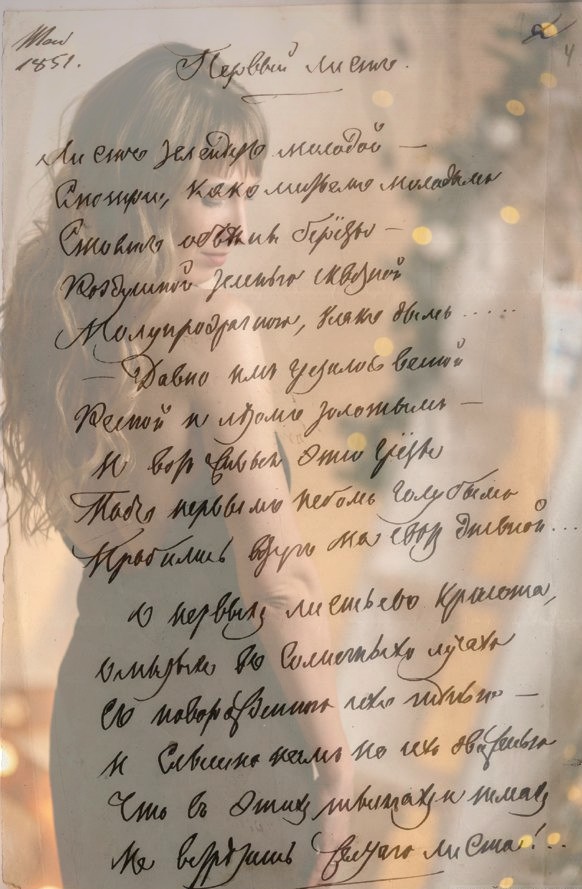 Май
1851.
4
Первый листъ.
Листъ зеленѣетъ молодой —
Смотри, какъ листьемъ молодымъ
Стоятъ обвѣяны берёзы —
Воздушной зеленью сквозной
Полупрозрачною, какъ дымъ.....
— Давно имъ грезилось весной
Весной и лѣтомъ золотымъ —
И вотъ живыя эти грёзы
Подъ первымъ небомъ голубымъ
Пробились вдругъ на свѣтъ дневной...
О первыхъ листьевъ красота,
Омытыхъ въ солнечныхъ лучахъ
Съ новорожденною ихъ тѣнью —
И слышно намъ по ихъ движенью
Что въ этихъ тысячахъ и тьмахъ
Не встрѣтишь мертваго листа!..